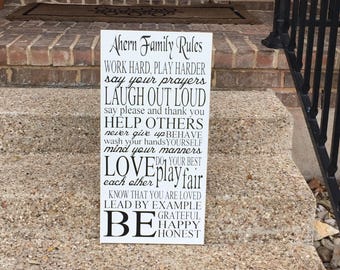 Ahern Family Rules
WORK HARD, PLAY HARDER
say your prayers
LAUGH OUT LOUD
say please and thank you
HELP OTHERS
never give up BEHAVE
wash your hands YOURSELF
mind your manners
LOVE each other
DO YOUR BEST
play fair
KNOW THAT YOU ARE LOVED
LEAD BY EXAMPLE
BE GRATEFUL
HAPPY
HONEST